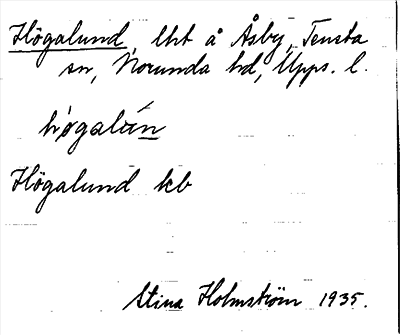 Högalund, lht å Åsby, Tensta
sn, Norunda hd, Upps. l.
hø̀galún
Högalund kb
Stina Holmström 1935.